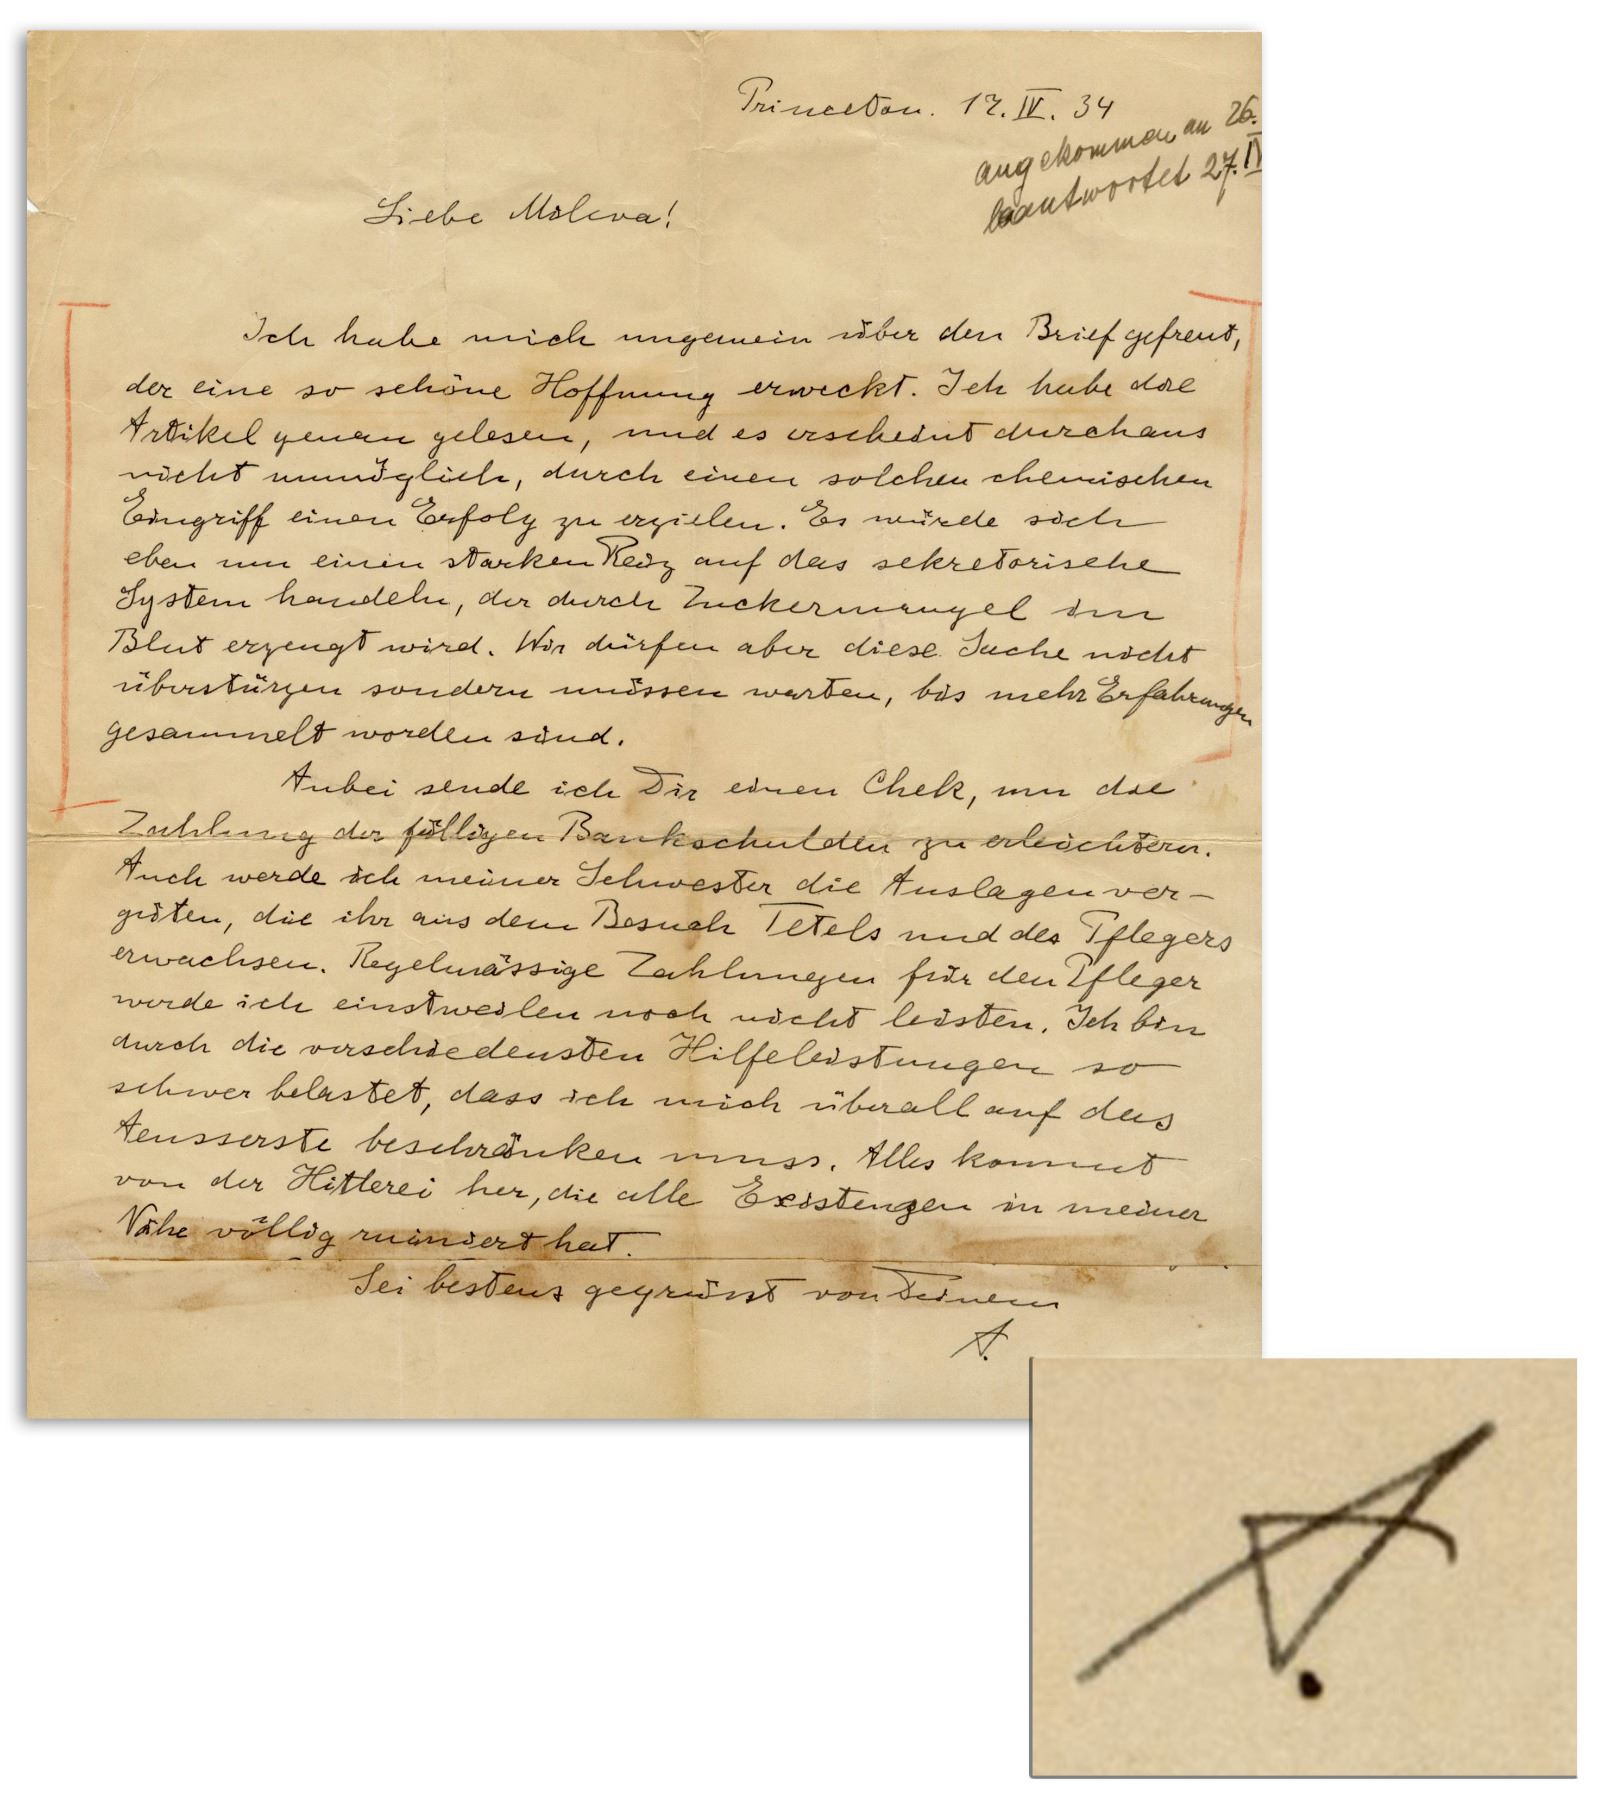 Princeton. 17. IV. 34
angekommen an 26.
beantwortet 27. IV
Liebe Mileva!
Ich habe mich ungemein über den Brief gefreut,
der eine so schöne Hoffnung erweckt. Ich habe die
Artikel genau gelesen, und es erscheint durchaus
nicht unmöglich, durch einen solchen chemischen
Eingriff einen Erfolg zu erzielen. Es würde sich
eben um einen starken Reiz auf das sekretorische
System handeln, der durch Zuckermangel im
Blut erzeugt wird. Wir dürfen aber diese Sache nicht
überstürzen sondern müssen warten, bis mehr Erfahrungen
gesammelt worden sind.
Anbei sende ich Dir einen Chek, um die
Zahlung der fälligen Bankschulden zu erleichtern.
Auch werde ich meiner Schwester die Auslagen ver-
güten, die ihr aus dem Besuch Tetels und des Pflegers
erwachsen. Regelmässige Zahlungen für den Pfleger
werde ich einstweilen noch nicht leisten. Ich bin
durch die verschiedensten Hilfeleistungen so
schwer belastet, dass ich mich überall auf das
Aeusserste beschränken muss. Alles kommt
von der Hitlerei her, die alle Existenzen in meiner
Nähe völlig ruiniert hat.
Sei bestens gegrüsst von Deinem
A.
A.